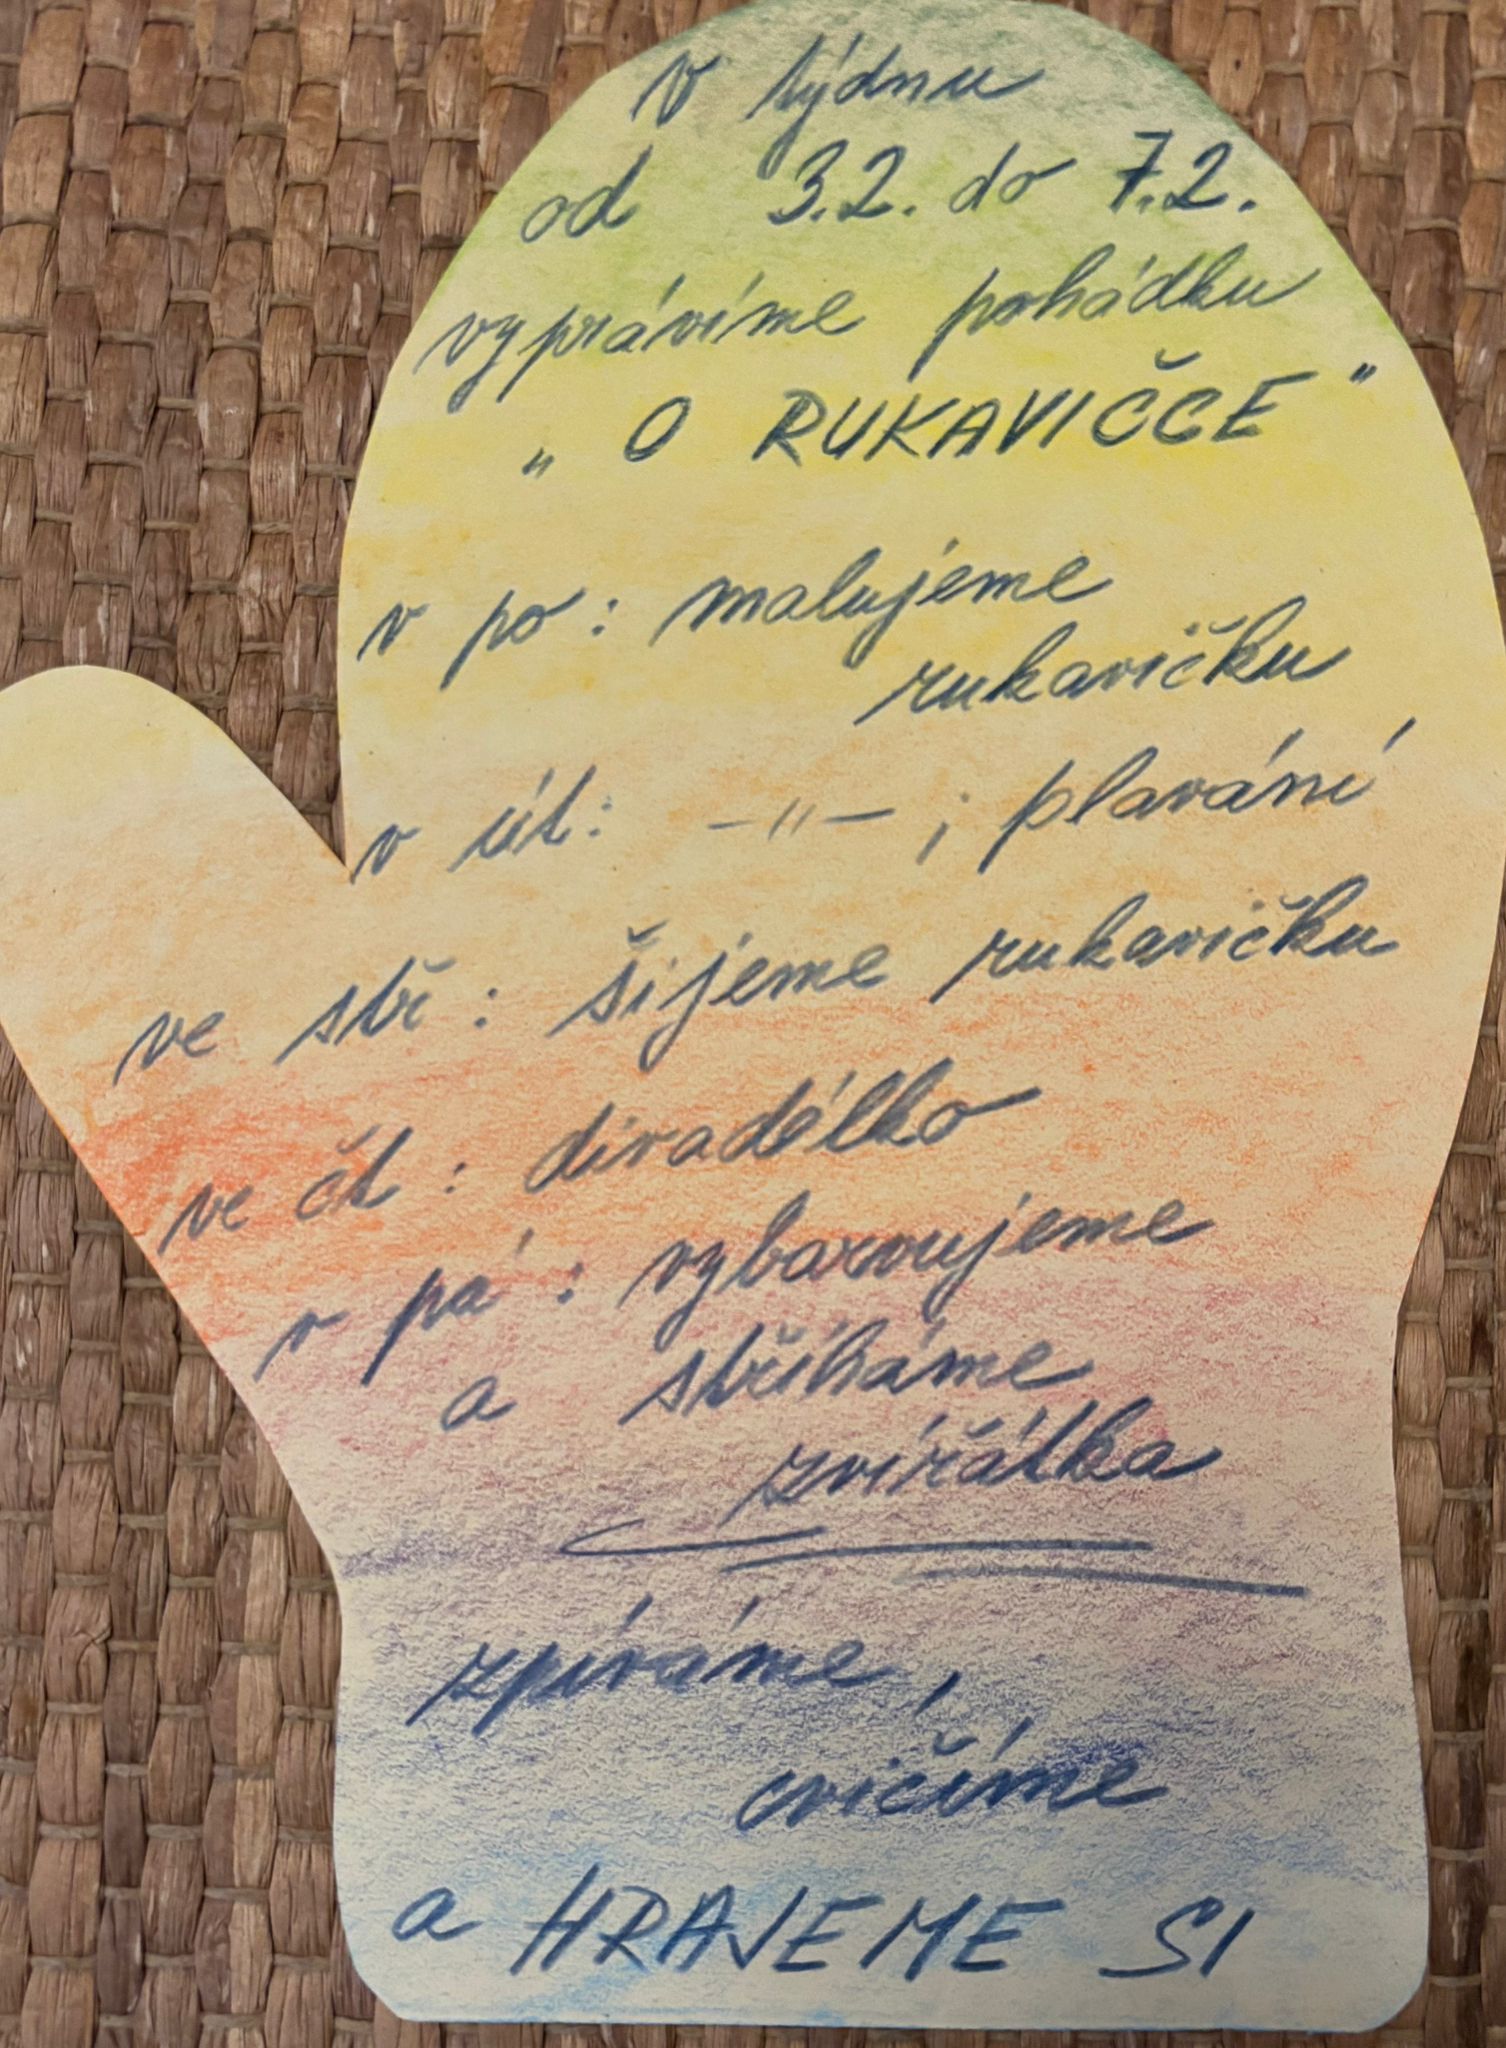 v týdnu
od 3.2. do 7.2.
vyprávíme pohádku
„O RUKAVIČCE"
v po: malujeme
rukavičku
v út: —"— ; plavání
ve stř: šijeme rukavičku
ve čt: divadélko
v pá: vybarvujeme
a stříháme
zvířátka
zpíváme,
cvičíme
a HRAJEME SI